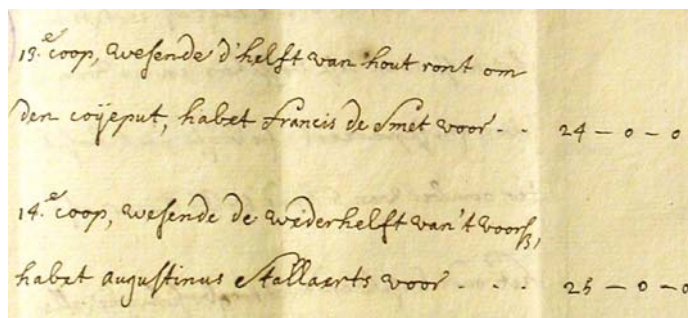 13.e coop, wesende d'helft van hout ront om
den coÿeput, habet francis de Smet voor - - 24 - 0 - 0
14.e coop, wesende de wederhelft van't voors,
habet augustinus Stallaerts voor - - - 25 - 0 - 0